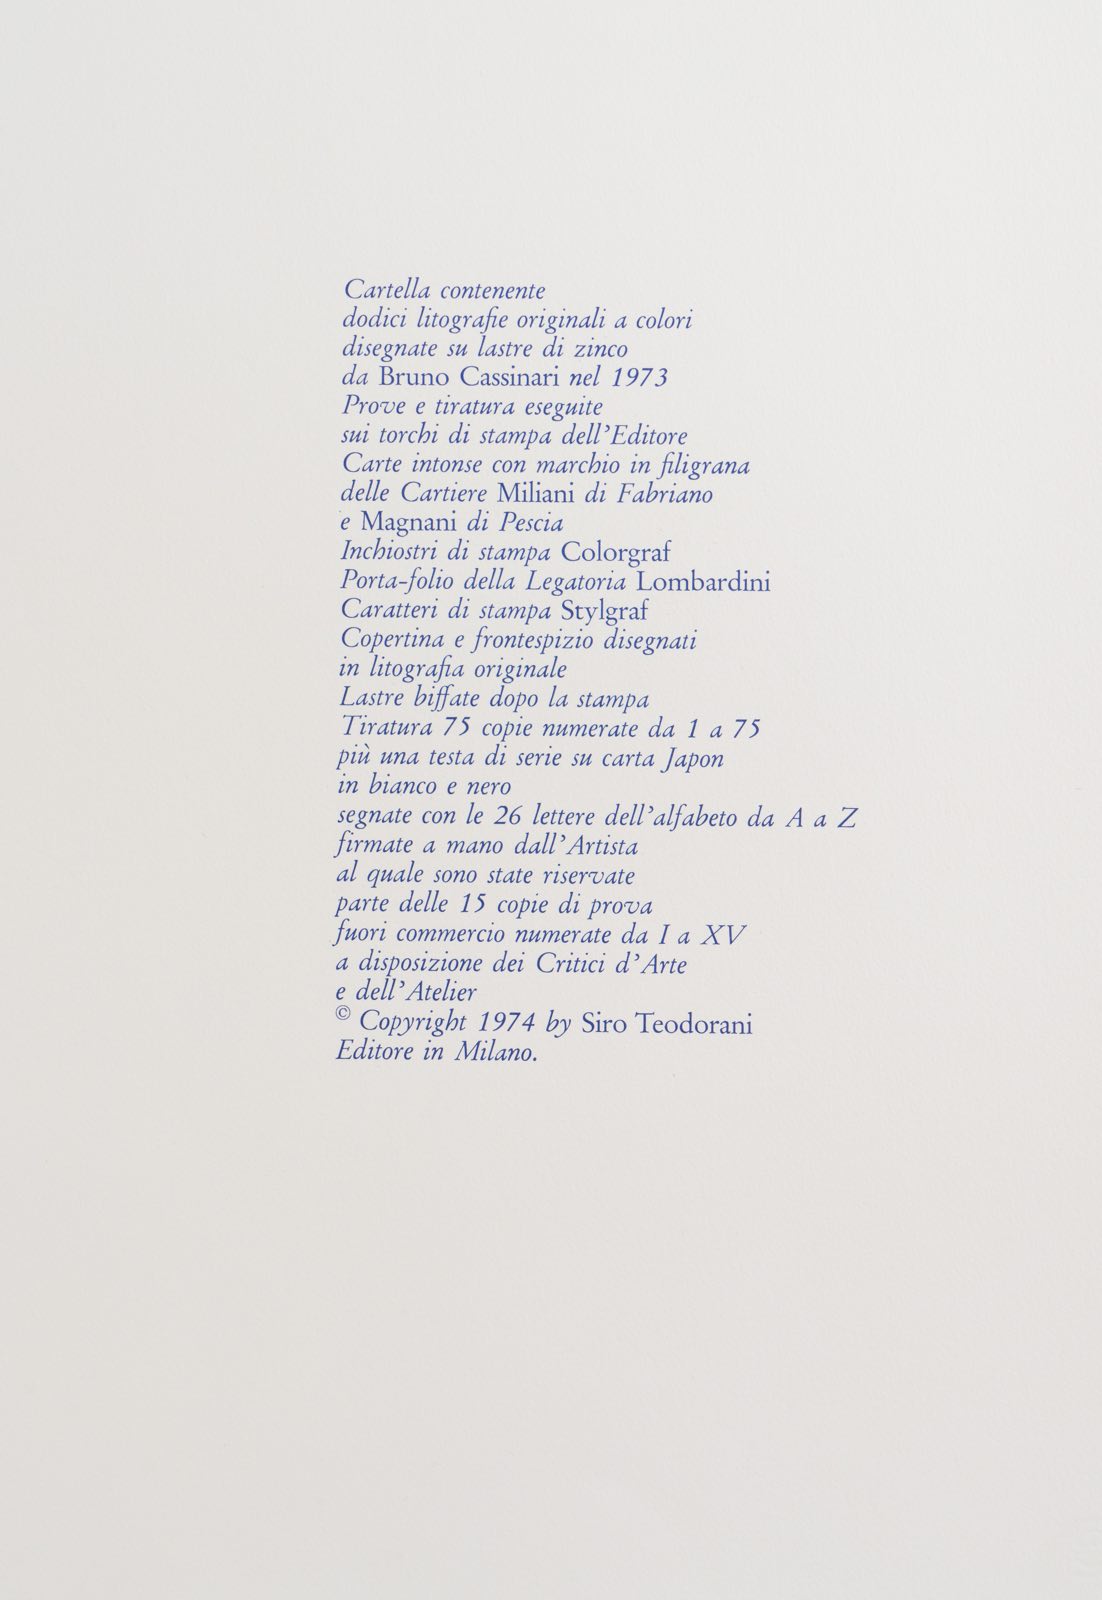 Cartella contenente
dodici litografie originali a colori
disegnate su lastre di zinco
da Bruno Cassinari nel 1973
Prove e tiratura eseguite
sui torchi di stampa dell'Editore
Carte intonse con marchio in filigrana
delle Cartiere Miliani di Fabriano
e Magnani di Pescia
Inchiostri di stampa Colorgraf
Porta-folio della Legatoria Lombardini
Caratteri di stampa Stylgraf
Copertina e frontespizio disegnati
in litografia originale
Lastre biffate dopo la stampa
Tiratura 75 copie numerate da 1 a 75
più una testa di serie su carta Japon
in bianco e nero
segnate con le 26 lettere dell'alfabeto da A a Z
firmate a mano dall'Artista
al quale sono state riservate
parte delle 15 copie di prova
fuori commercio numerate da I a XV
a disposizione dei Critici d'Arte
e dell'Atelier
© Copyright 1974 by Siro Teodorani
Editore in Milano.